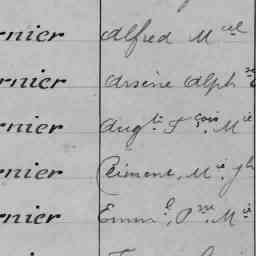 rnier Alfred M cel
rnier Arsène Alph se
rnier Aug te F çois M ie
rnier Clément, M ie J h
rnier Emm l, P rre M ie